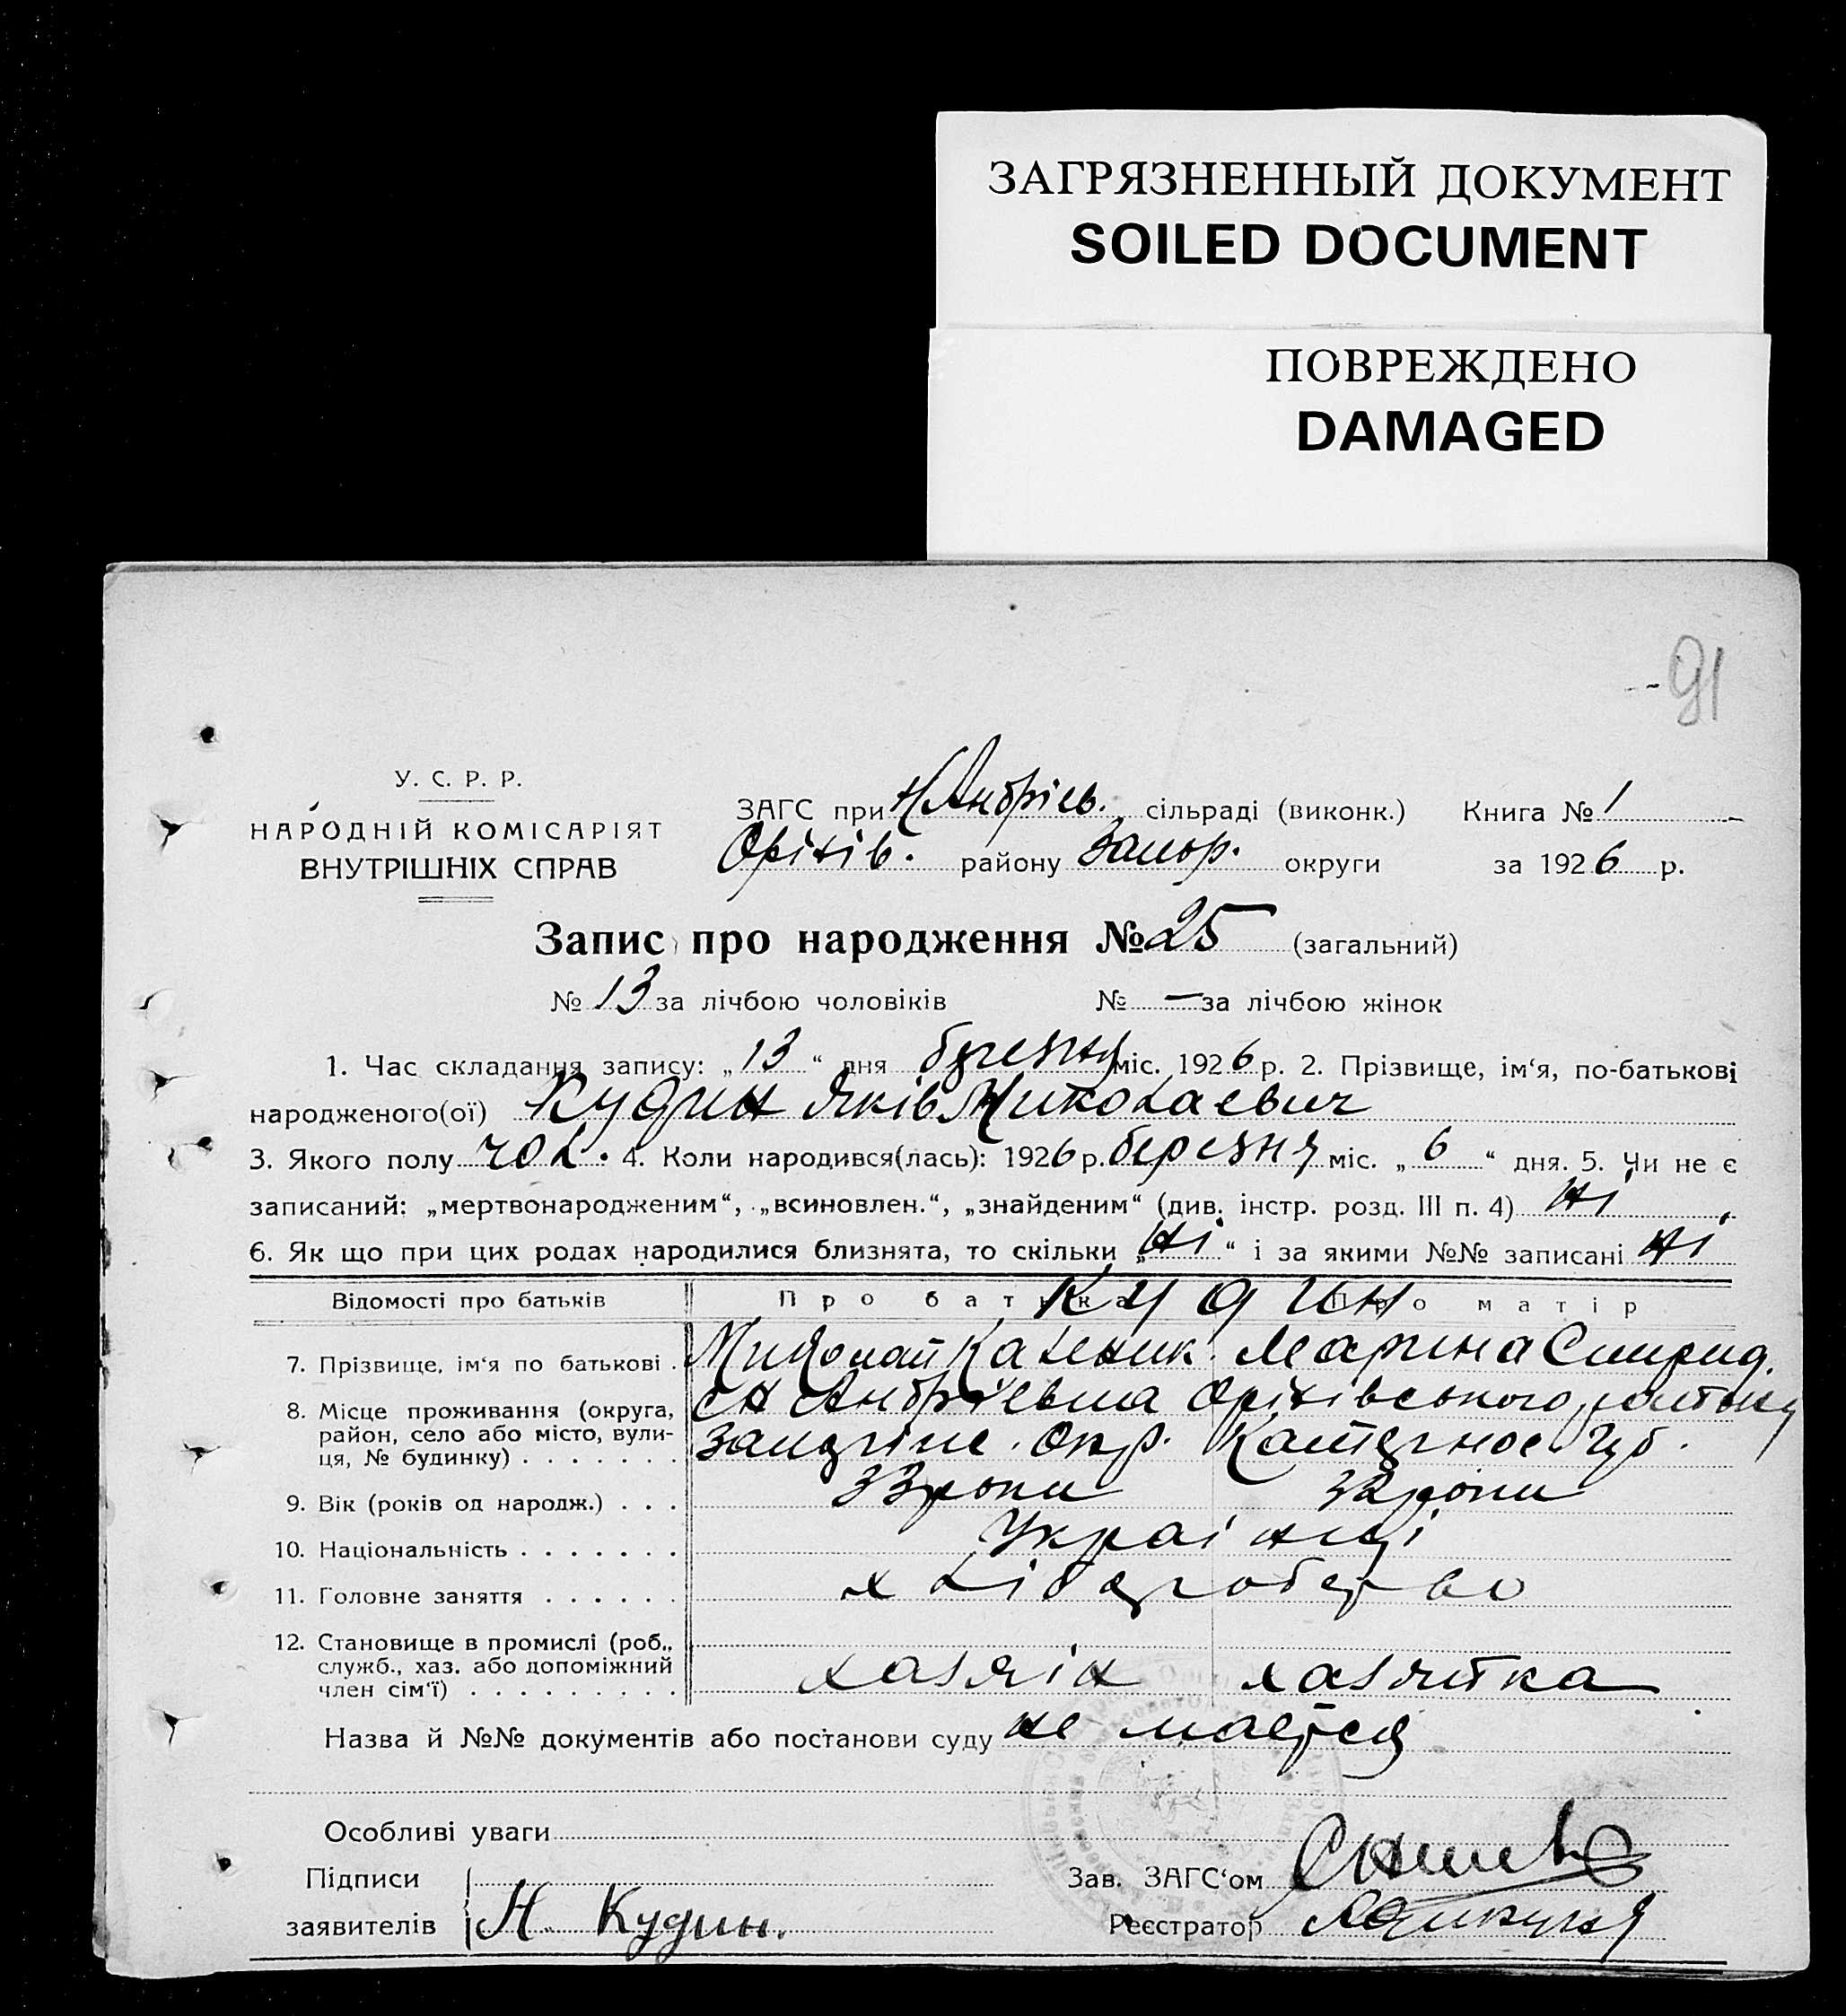 ЗАГРЯЗНЕННЫЙ ДОКУМЕНТ
SOILED DOCUMENT
ПОВРЕЖДЕНО
DAMAGED
91
У. С. Р. Р.
НАРОДНІЙ КОМІСАРІЯТ
ВНУТРІШНІХ СПРАВ
ЗАГС при Н Андріев. сільраді (виконк.) Книга № 1
Оріхів. району Запор. округи за 1926 р.
Запис про народження № 25 (загальний)
№ 13 за лічбою чоловіків № — за лічбою жінок
1. Час складання запису: „13“ дня березня міс. 1926 р. 2. Прізвище, ім‘я, по-батькові
народженого(ої) Кудин Яків Миколаевич
3. Якого полу чол. 4. Коли народився(лась): 1926 р. березня міс. „6“ дня. 5. Чи не є
записаний: „мертвонародженим“, „всиновлен.“, „знайденим“ (див. інстр. розд. III п. 4) ні
6. Як що при цих родах народилися близнята, то скільки „ні“ і за якими №№ записані ні
Відомості про батьків Про батька Про матір
Кудин
7. Прізвище, ім‘я по батькові . Миколай Каленик. Марина Спирид.
8. Місце проживання (округа, район, село або місто, вулиця, № будинку) . . . . . . . с Н Андріевка Оріхівського району
Запоріжс. Окр. Катернос. Губ.
9. Вік (років од народж.) . . . 33 роки роки
10. Національність . . . . . . . Украінці
11. Головне заняття . . . . . . хліборобство
12. Становище в промислі (роб., служб., хаз. або допоміжний член сім‘ї) . . . . . . . . . хазяін хазяйка
Назва й №№ документів або постанови суду не маєтся
Особливі уваги
Підписи Зав. ЗАГС‘ом
заявителів Н. Кудин. Реєстратор